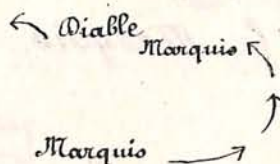 Diable
Marquis
Marquis